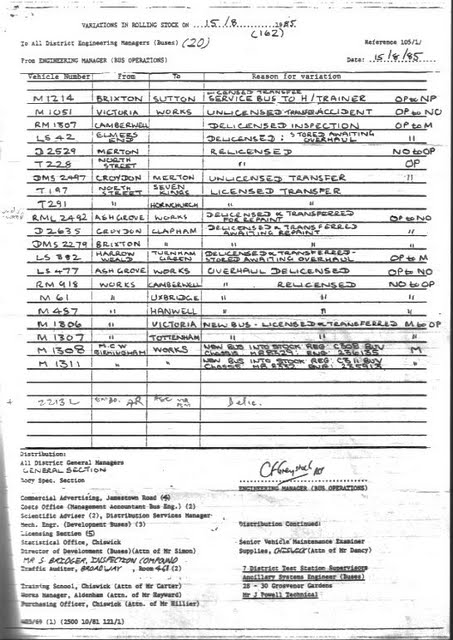 VARIATIONS IN ROLLING STOCK ON 15/8 1985
(162)
To All District Engineering Managers (Buses) (20) Reference 105/1/
From ENGINEERING MANAGER (BUS OPERATIONS) Date: 15/8/85
Vehicle Number From To Reason for variation
M1214 BRIXTON SUTTON LICENSED TRANSFER SERVICE BUS TO H/TRAINER OP to NP
M1051 VICTORIA WORKS UNLICENSED TRANSFER ACCIDENT OP to NO
RM1307 CAMBERWELL DELICENSED INSPECTION OP to M
LS42 ELMERS END DELICENSED : STORED AWAITING OVERHAUL "
D2529 MERTON RELICENSED NO to OP
T228 NORTH STREET " OP
DMS2497 CROYDON MERTON UNLICENSED TRANSFER "
T197 NORTH STREET SEVEN KINGS LICENSED TRANSFER
T291 " HORNCHURCH " "
RML2492 ASH GROVE WORKS DELICENSED & TRANSFERRED FOR REPAINT OP to NO
D2635 CROYDON CLAPHAM DELICENSED & TRANSFERRED AWAITING REPAINT "
DMS2279 BRIXTON " " " "
LS382 HARROW WEALD TURNHAM GREEN DELICENSED & TRANSFERRED - STORED AWAITING OVERHAUL OP to M
LS477 ASH GROVE WORKS OVERHAUL DELICENSED OP to NO
RM918 WORKS CAMBERWELL " RELICENSED NO to OP
M61 " UXBRIDGE " " "
M457 " HANWELL " " "
M1306 " VICTORIA NEW BUS - LICENSED & TRANSFERRED M to OP
M1307 " TOTTENHAM " " " "
M1308 M.C.W BIRMINGHAM WORKS NEW BUS INTO STOCK REG C308 BUV M
M1311 " " NEW BUS INTO STOCK REG C311 BUV "
2213L AR Delic.
Distribution:
All District General Managers
GENERAL SECTION
Body Spec. Section
ENGINEERING MANAGER (BUS OPERATIONS)
Commercial Advertising, Jamestown Road (4)
Costs Office (Management Accountant Bus Eng.) (2)
Scientific Adviser (2), Distribution Services Manager
Mech. Engr. (Development Buses) (3) Distribution Continued:
Licensing Section (5)
Statistical Office, Chiswick Senior Vehicle Maintenance Examiner
Director of Development (Buses)(Attn of Mr Simon) Supplies, CHISWICK (Attn of Mr Dancy)
MR S BRIDGER, INSPECTION COMPOUND
Traffic Auditor, BROADWAY, Room 468 (2) 7 District Test Station Supervisors
Ancillary Systems Engineer (Buses)
Training School, Chiswick (Attn of Mr Carter) 28 - 30 Grosvenor Gardens
Works Manager, Aldenham (Attn of Mr Hayward) Mr J Powell Technical
Purchasing Officer, Chiswick (Attn of Mr Hillier)
(1) (2500 10/81 121/1)